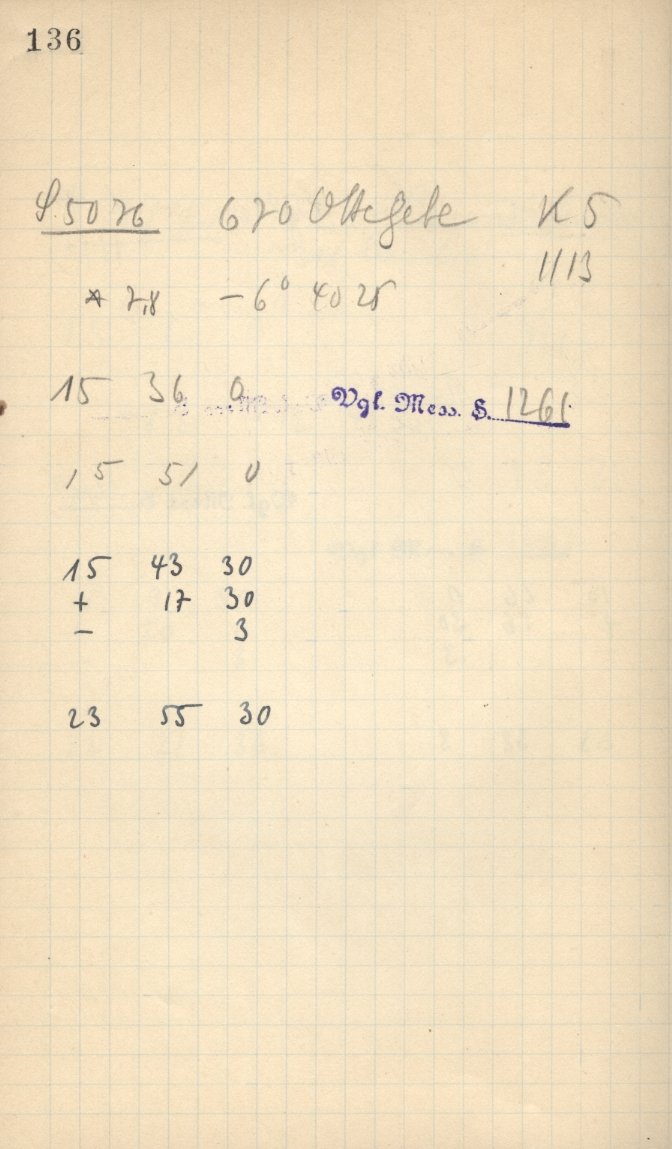 136
S. 5076 620 Ottegebe K 5
1/13
* 7,8 – 6° 40 25
15 36 0 Vgl. Mess. S. 1261
15 51 0
15 43 30
+ 17 30
– 3
23 55 30